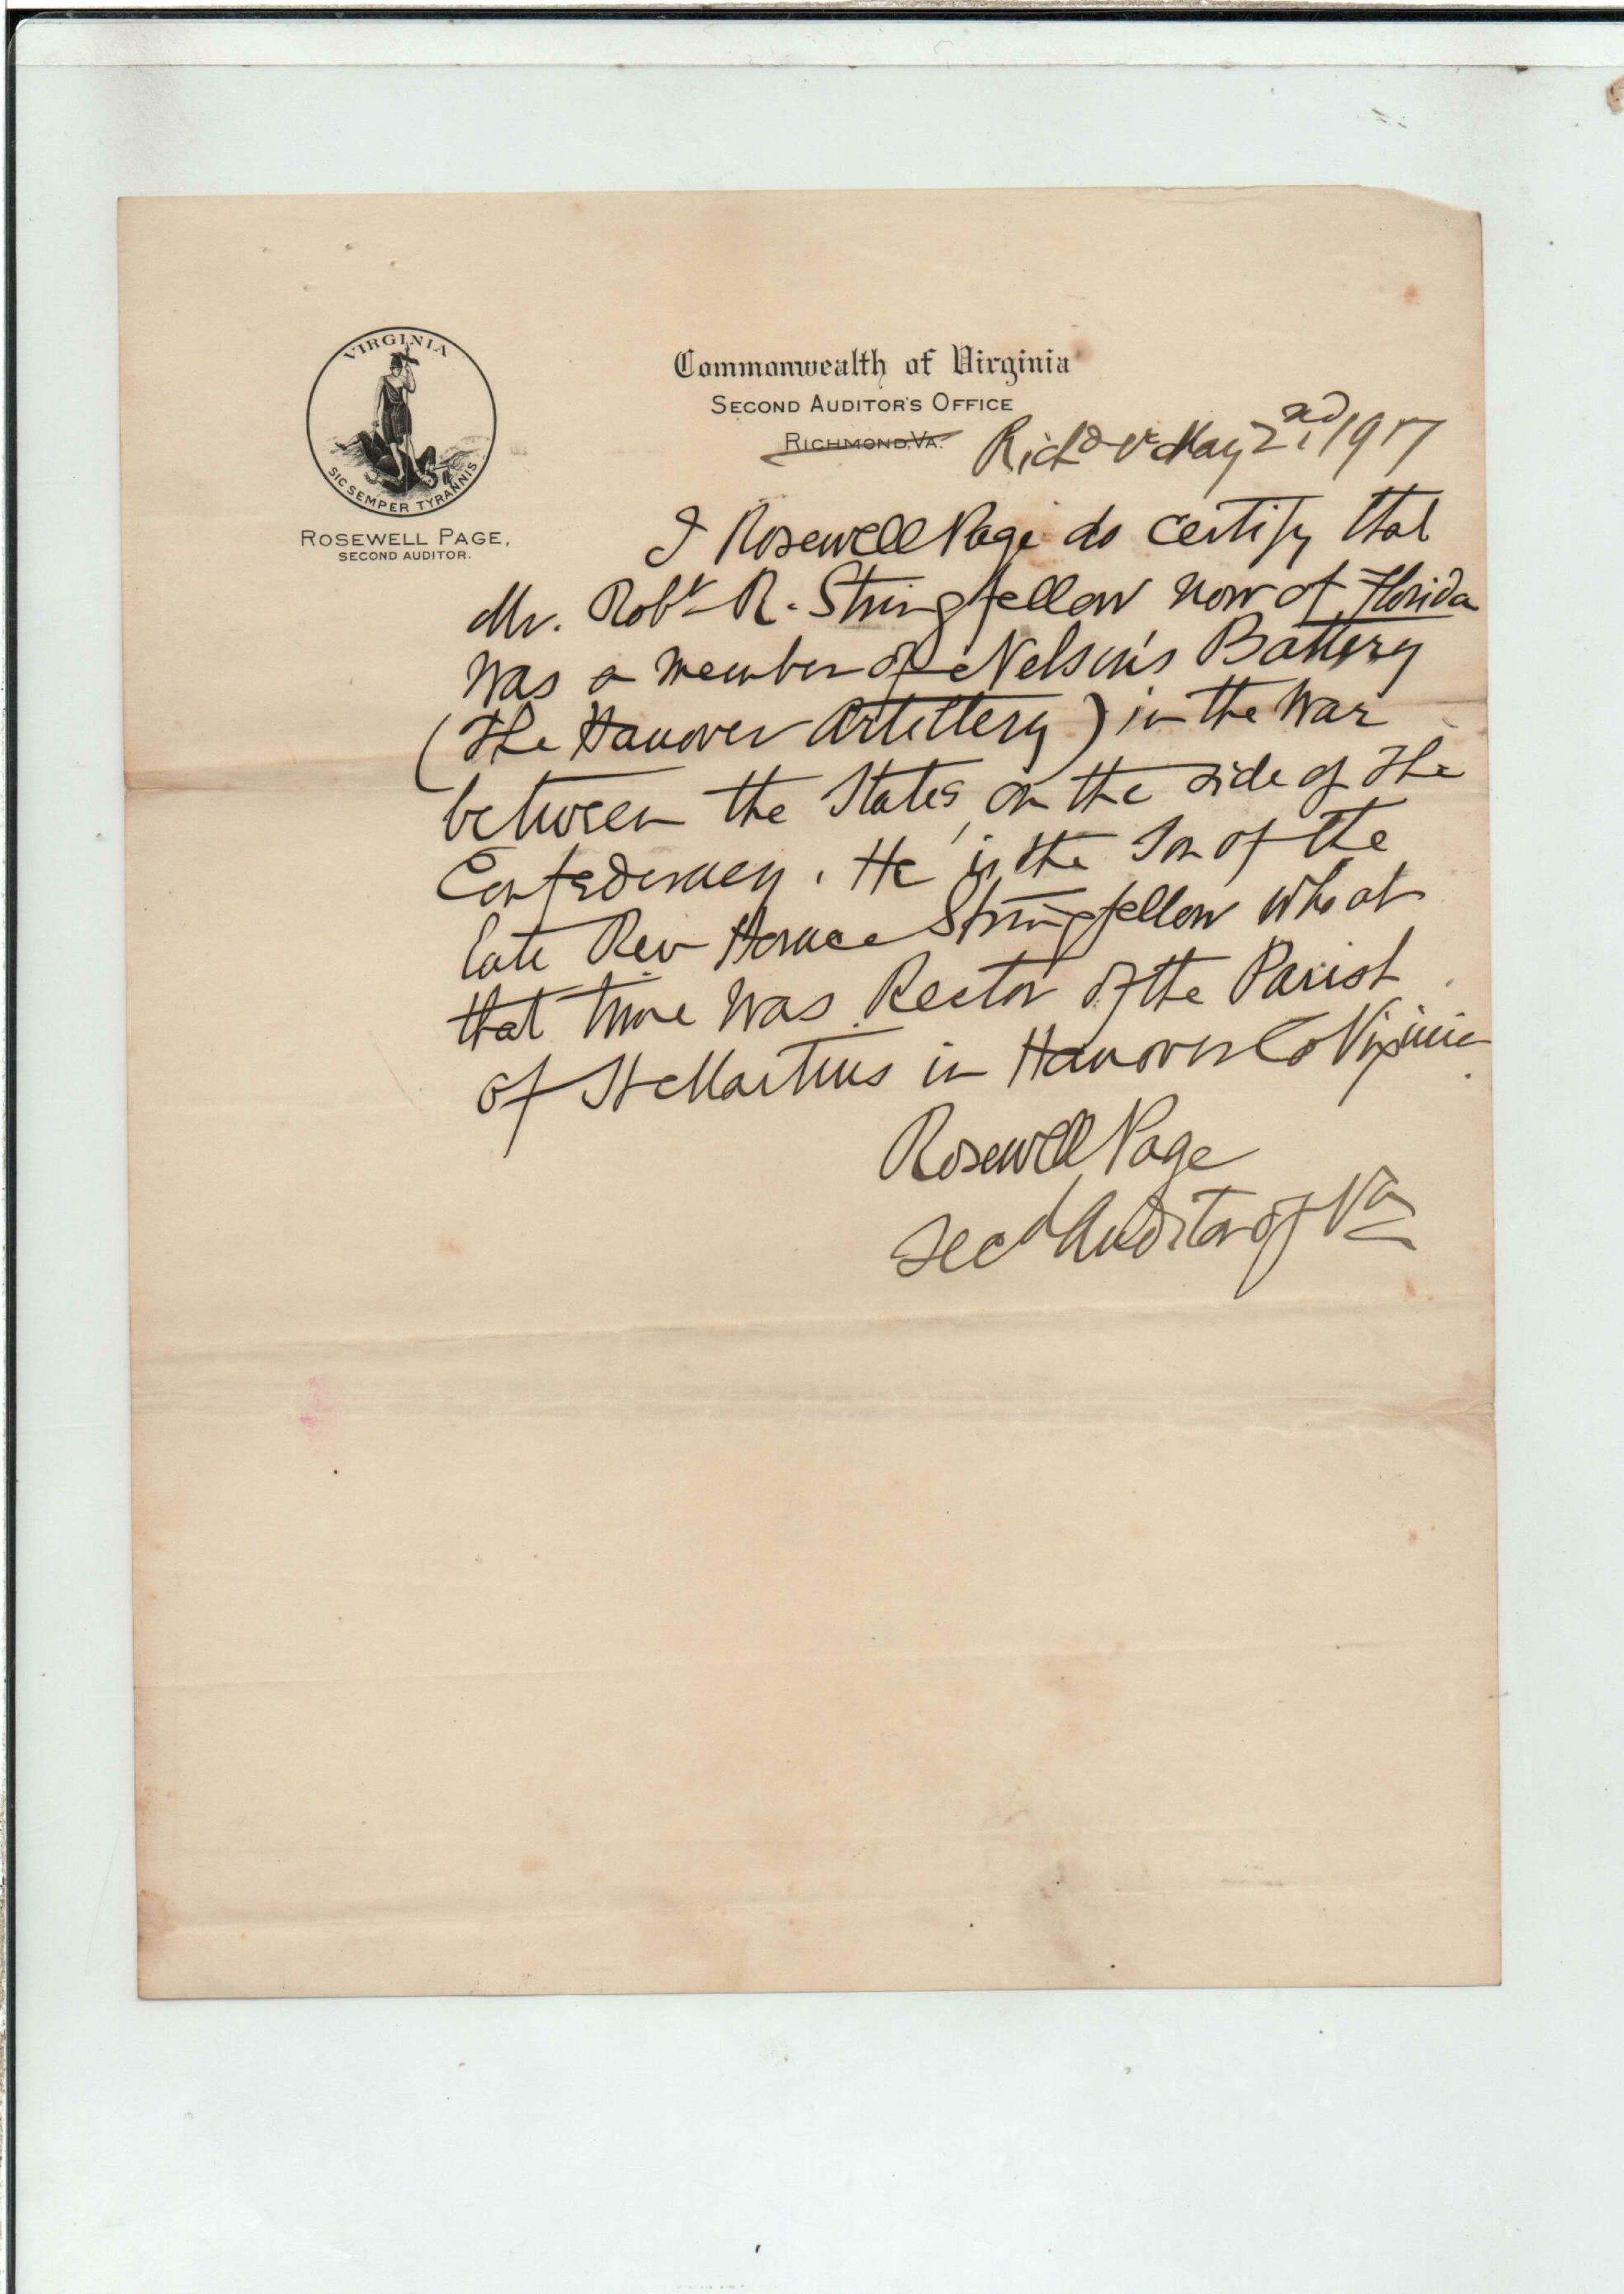 VIRGINIA
SIC SEMPER TYRANNIS
ROSEWELL PAGE,
SECOND AUDITOR.
Commonwealth of Virginia
SECOND AUDITOR'S OFFICE
RICHMOND, VA.
Richd Va May 2nd, 1917
I Rosewell Page do certify that
Mr. Robt R. Stringfellow now of Florida
was a member of Nelson's Battery
(The Hanover Artillery) in the War
between the States, on the side of the
Confederacy. He is the Son of the
late Rev Horace Stringfellow who at
that time was Rector of the Parish
of St Martins in Hanover Co Virginia.
Rosewell Page
Secd Auditor of Va